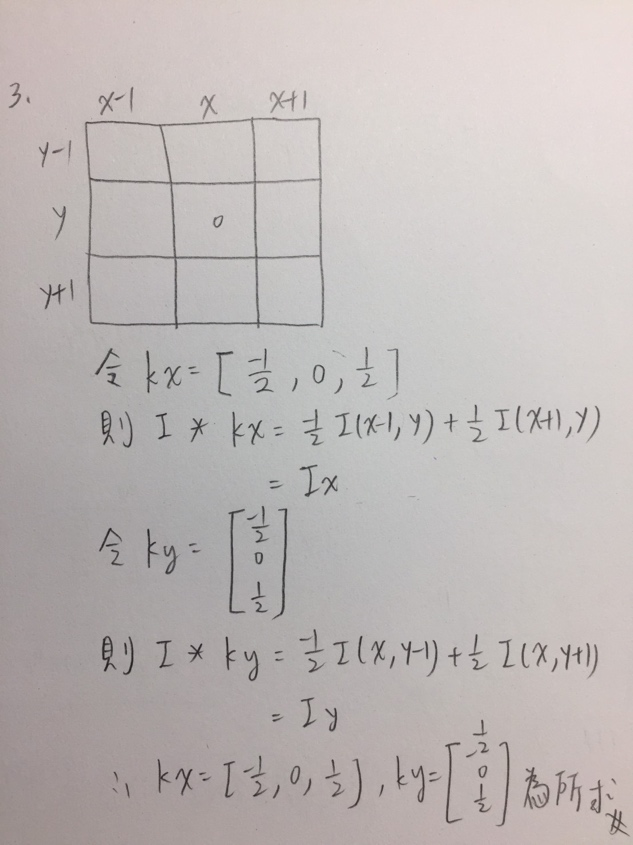 3.
x-1 x x+1
y-1
y 0
y+1
令 kx = [ -1/2 , 0 , 1/2 ]
則 I * kx = -1/2 I(x-1, y) + 1/2 I(x+1, y)
= Ix
令 ky = [ -1/2 0 1/2 ]
則 I * ky = -1/2 I(x, y-1) + 1/2 I(x, y+1)
= Iy
∴ kx = [ -1/2 , 0 , 1/2 ] , ky = [ -1/2 0 1/2 ] 為所求 #